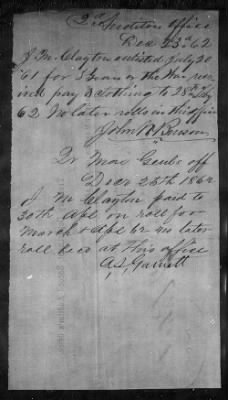 2d Auditors Office
Dec 23d 62
J M Clayton enlisted July 20
'61 for 3 years or the War rece
ived pay & clothing to 28th Feby
62 No later rolls in this office
John W
Qr Mas Genls off
Decr 28th 186
J M Clayton paid to
30th Apl on roll for
March & Apl 62 no later
roll recd at this office
A. S. Garnett